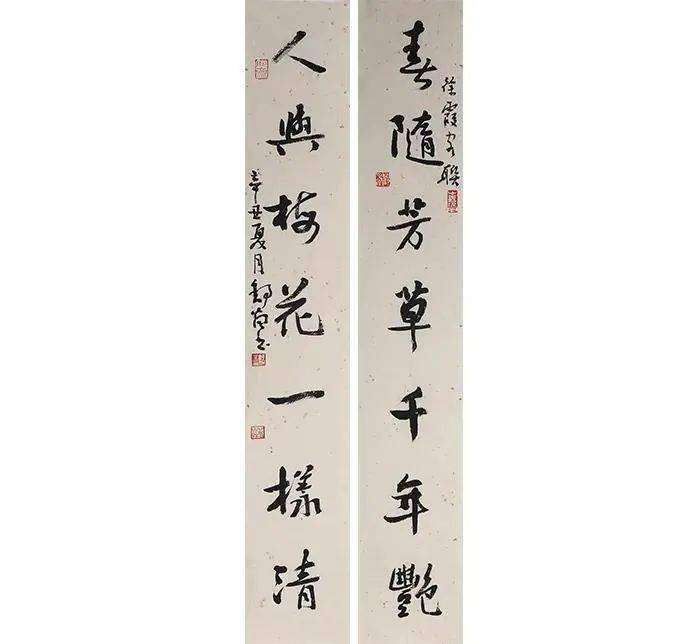 春隨芳草千年艷
徐霞客联
人與梅花一樣清
辛丑夏月